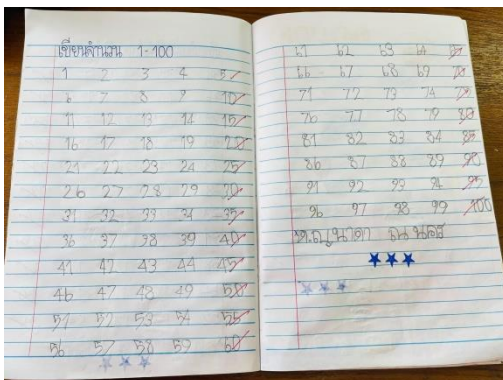 เขียนจำนวน 1-100
1 2 3 4 5
6 7 8 9 10
11 12 13 14 15
16 17 18 19 20
21 22 23 24 25
26 27 28 29 30
31 32 33 34 35
36 37 38 39 40
41 42 43 44 45
46 47 48 49 50
51 52 53 54 55
56 57 58 59 60
61 62 63 64 65
66 67 68 69 70
71 72 73 74 75
76 77 78 79 80
81 82 83 84 85
86 87 88 89 90
91 92 93 94 95
96 97 98 99 100
ด.ญ.